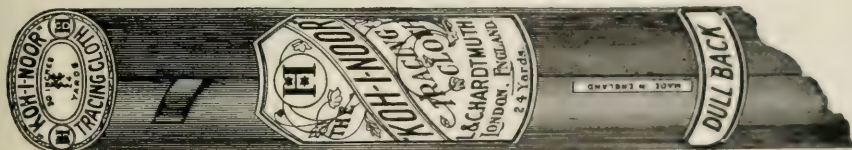 KOH-I-NOOR
30 INCHES
YARDS
TRACING CLOTH
H
H
H
THE
KOH-I-NOOR
TRACING
CLOTH
L&C HARDTMUTH
LONDON, ENGLAND
24 Yards.
MADE IN ENGLAND
DULL BACK